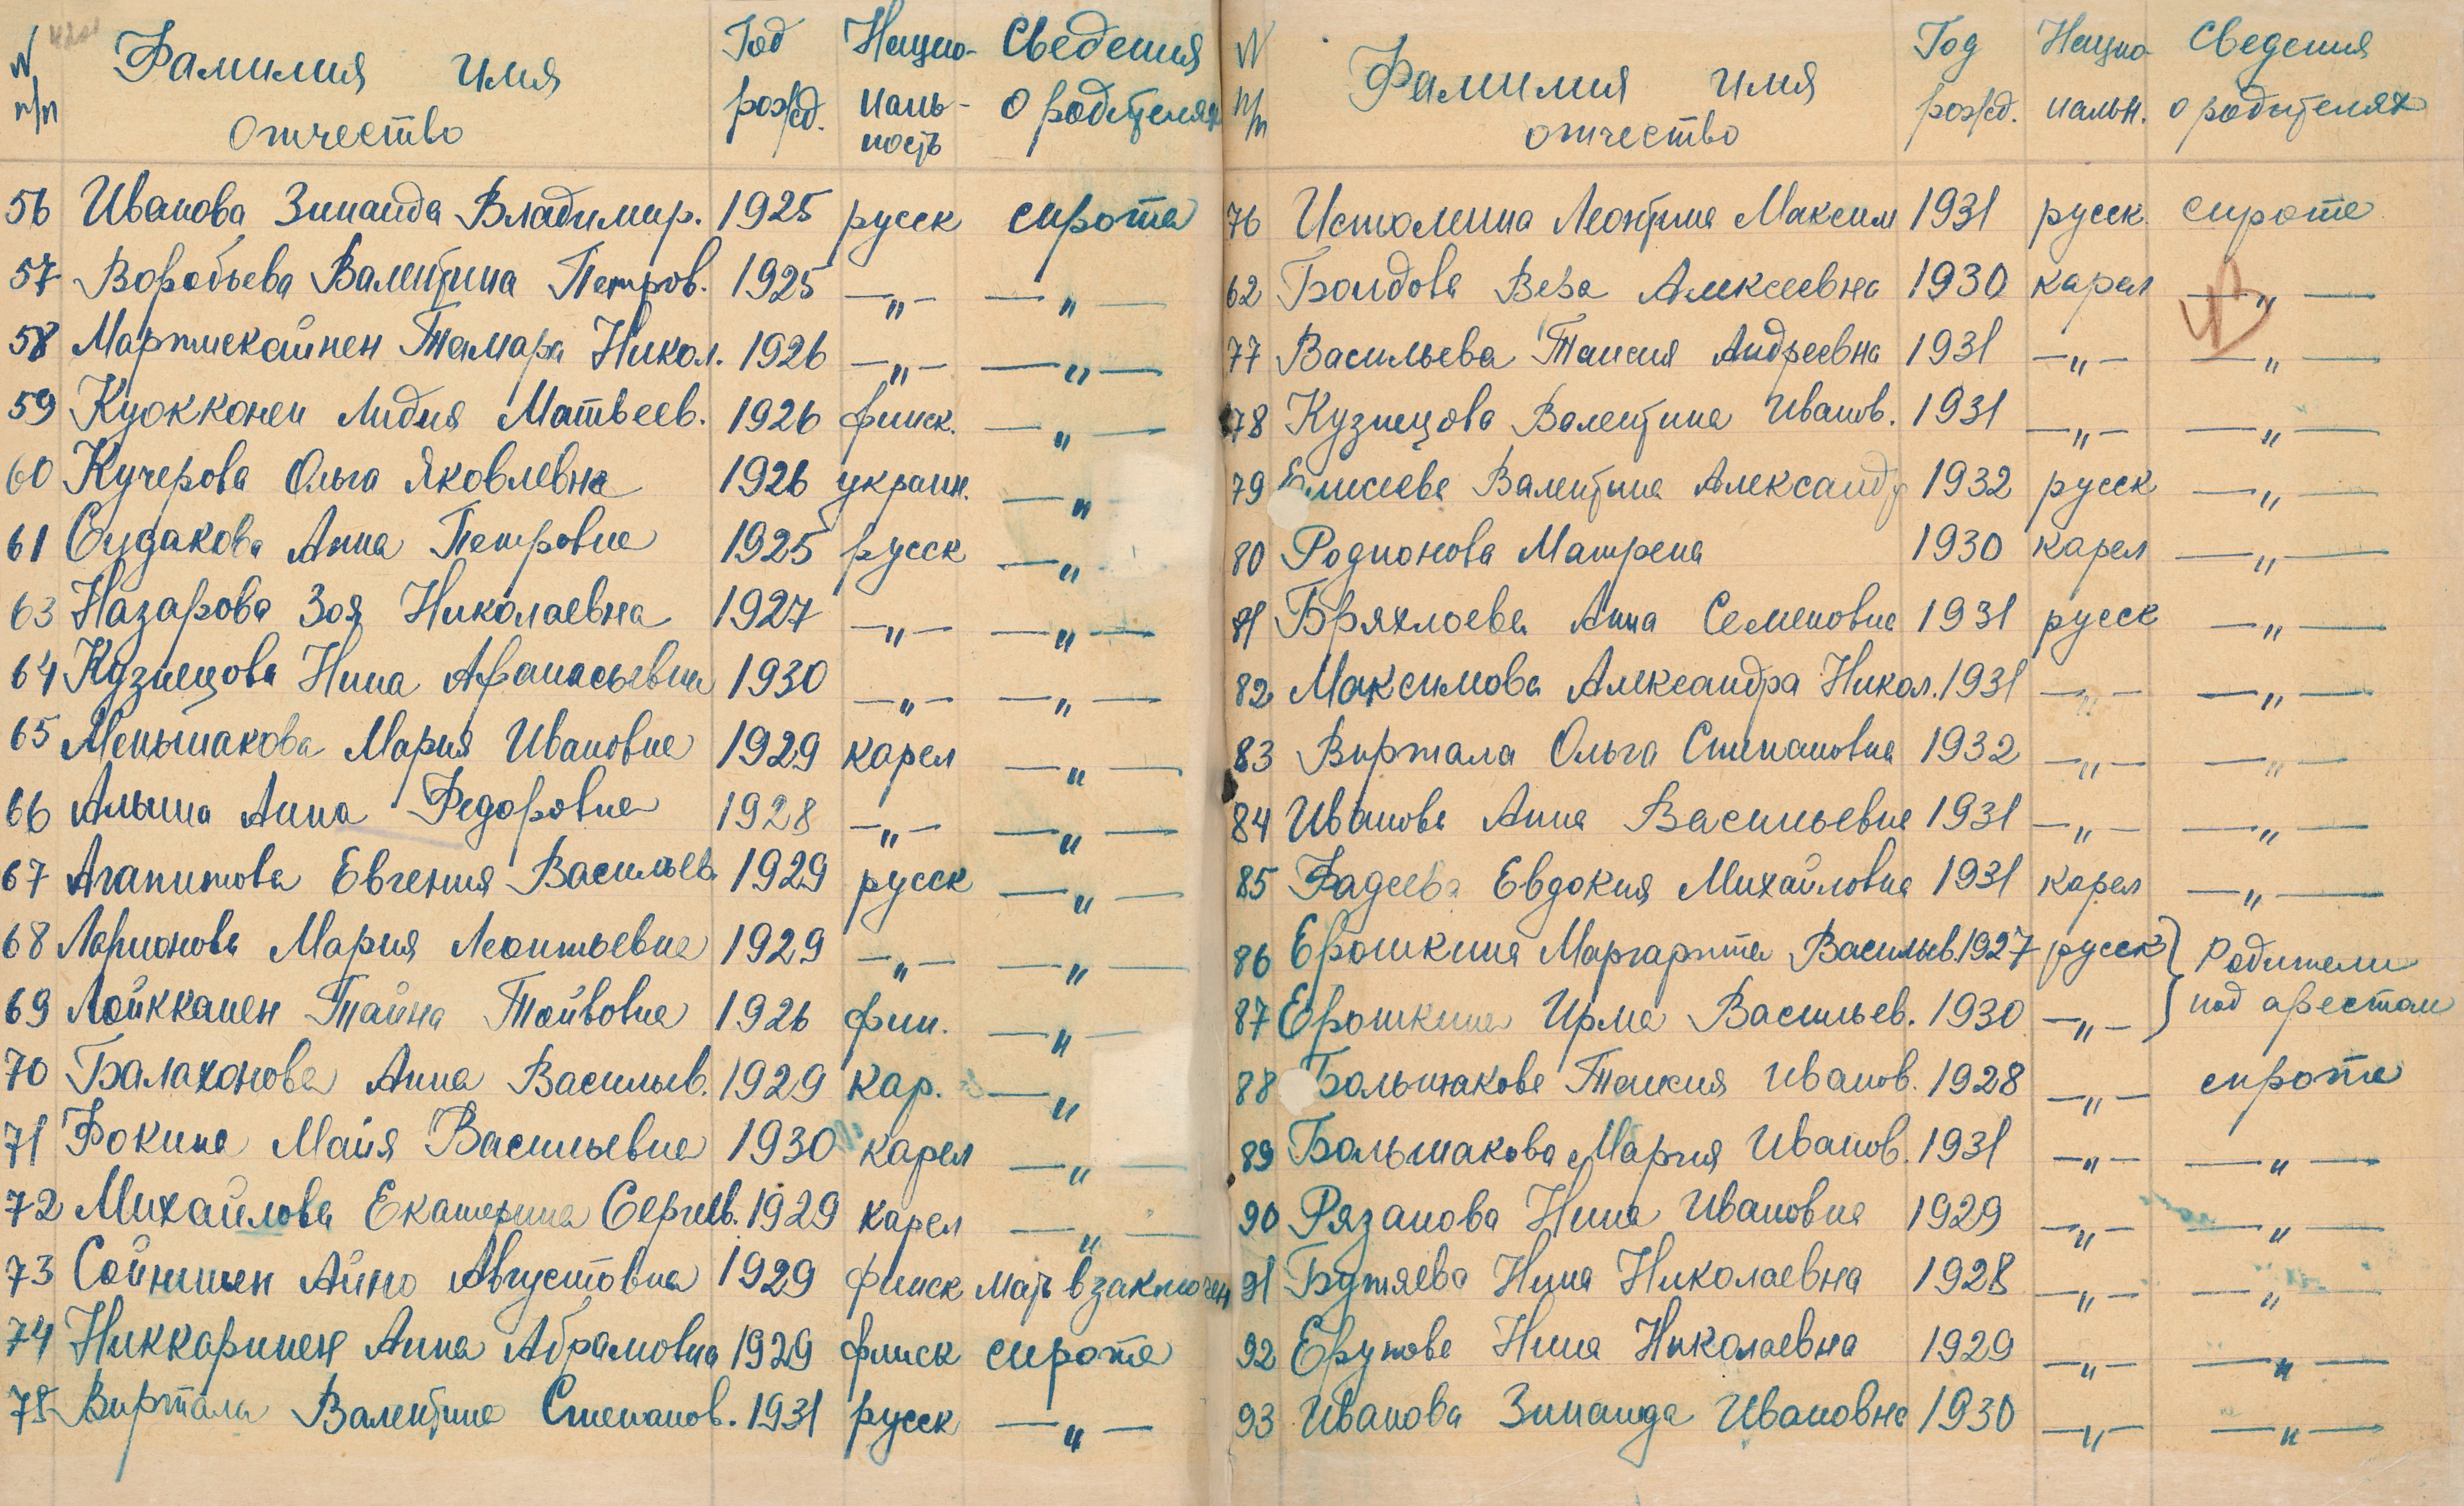 N п/п Фамилия имя отчество Год рожд. Нацио- наль- ность Сведения о родителях
56 Иванова Зинаида Владимир. 1925 русск сирота
57 Воробьева Валентина Петров. 1925 —„— —„—
58 Мартискайнен Тамара Никол. 1926 —„— —„—
59 Куокконен Лидия Матвеев. 1926 финск. —„—
60 Кучерова Ольга Яковлевна 1926 украин. —„—
61 Судакова Анна Петровна 1925 русск —„—
63 Назарова Зоя Николаевна 1927 —„— —„—
64 Кузнецова Нина Афанасьевна 1930 —„— —„—
65 Меньшакова Мария Ивановна 1929 карел —„—
66 Алыша Анна Федоровна 1928 —„— —„—
67 Агапитова Евгения Васильев. 1929 русск —„—
68 Ларионова Мария Леонтьевна 1929 —„— —„—
69 Лойкканен Тайна Тойвовна 1926 фин. —„—
70 Балахонова Анна Васильев. 1929 кар. —„—
71 Фокина Майя Васильевна 1930 карел —„—
72 Михайлова Екатерина Сергеев. 1929 карел —„—
73 Сойнинен Айно Августовна 1929 финск мать в заключен
74 Никкаринен Анна Абрамовна 1929 финск сирота
75 Виртала Валентина Степанов. 1931 русск —„—
N п/п Фамилия имя отчество Год рожд. Нацио нальн. Сведения о родителях
76 Истомина Леонтина Максим 1931 русск. сирота
62 Болдова Вера Алексеевна 1930 карел —„—
77 Васильева Таисия Андреевна 1931 —„— —„—
78 Кузнецова Валентина Иванов. 1931 —„— —„—
79 Елисеева Валентина Александр 1932 русск —„—
80 Родионова Матрена 1930 карел —„—
81 Бряхлоева Анна Семеновна 1931 русск —„—
82 Максимова Александра Никол. 1931 —„— —„—
83 Виртала Ольга Степановна 1932 —„— —„—
84 Иванова Анна Васильевна 1931 —„— —„—
85 Фадеева Евдокия Михайловна 1931 карел —„—
86 Ерошкина Маргарита Васильев. 1927 русск } Родители
87 Ерошкина Ирма Васильев. 1930 —„— } под арестом
88 Большакова Таисия Иванов. 1928 —„— сирота
89 Большакова Мария Иванов. 1931 —„— —„—
90 Рязанова Нина Ивановна 1929 —„— —„—
91 Бутяева Нина Николаевна 1928 —„— —„—
92 Ерутова Нина Николаевна 1929 —„— —„—
93 Иванова Зинаида Ивановна 1930 —„— —„—